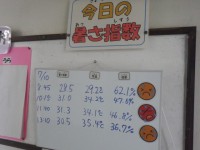 今日の
暑さ指数
7/10
8:45 28.5 29.2℃ 62.1%
10:15 31.0 34.2℃
11:40 31.3 34.1℃ 46.8%
13:10 30.5 35.4℃ 36.7%